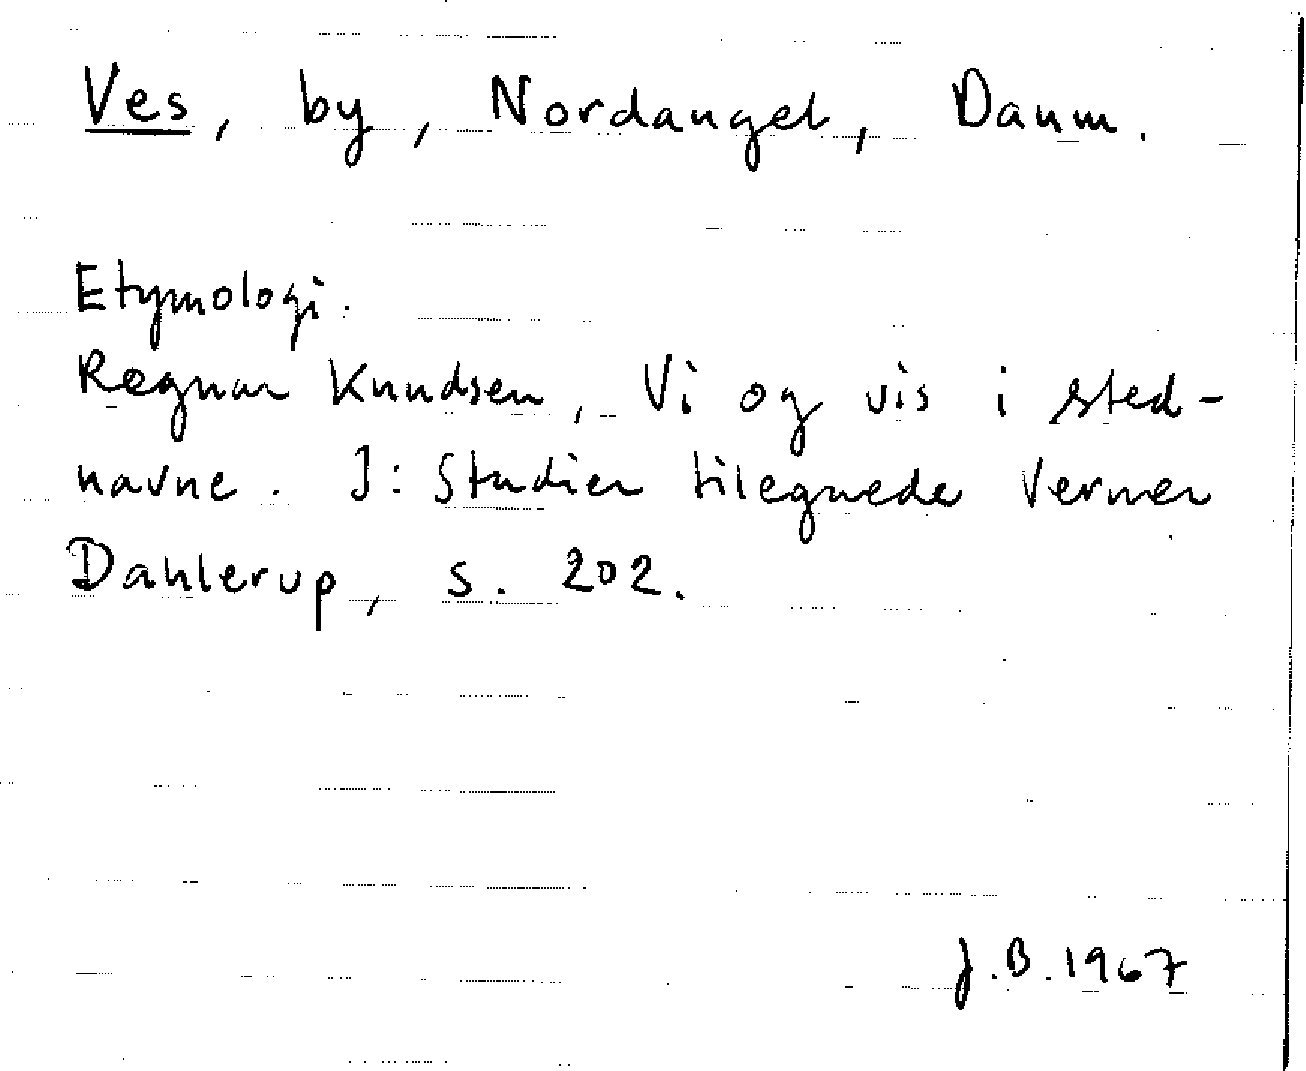 Ves, by, Nordangel, Danm.
Etymologi.
Regnar Knudsen, Vi og vis i sted-
navne. I: Studier tilegnede Verner
Dahlerup, s. 202.
J.B. 1967